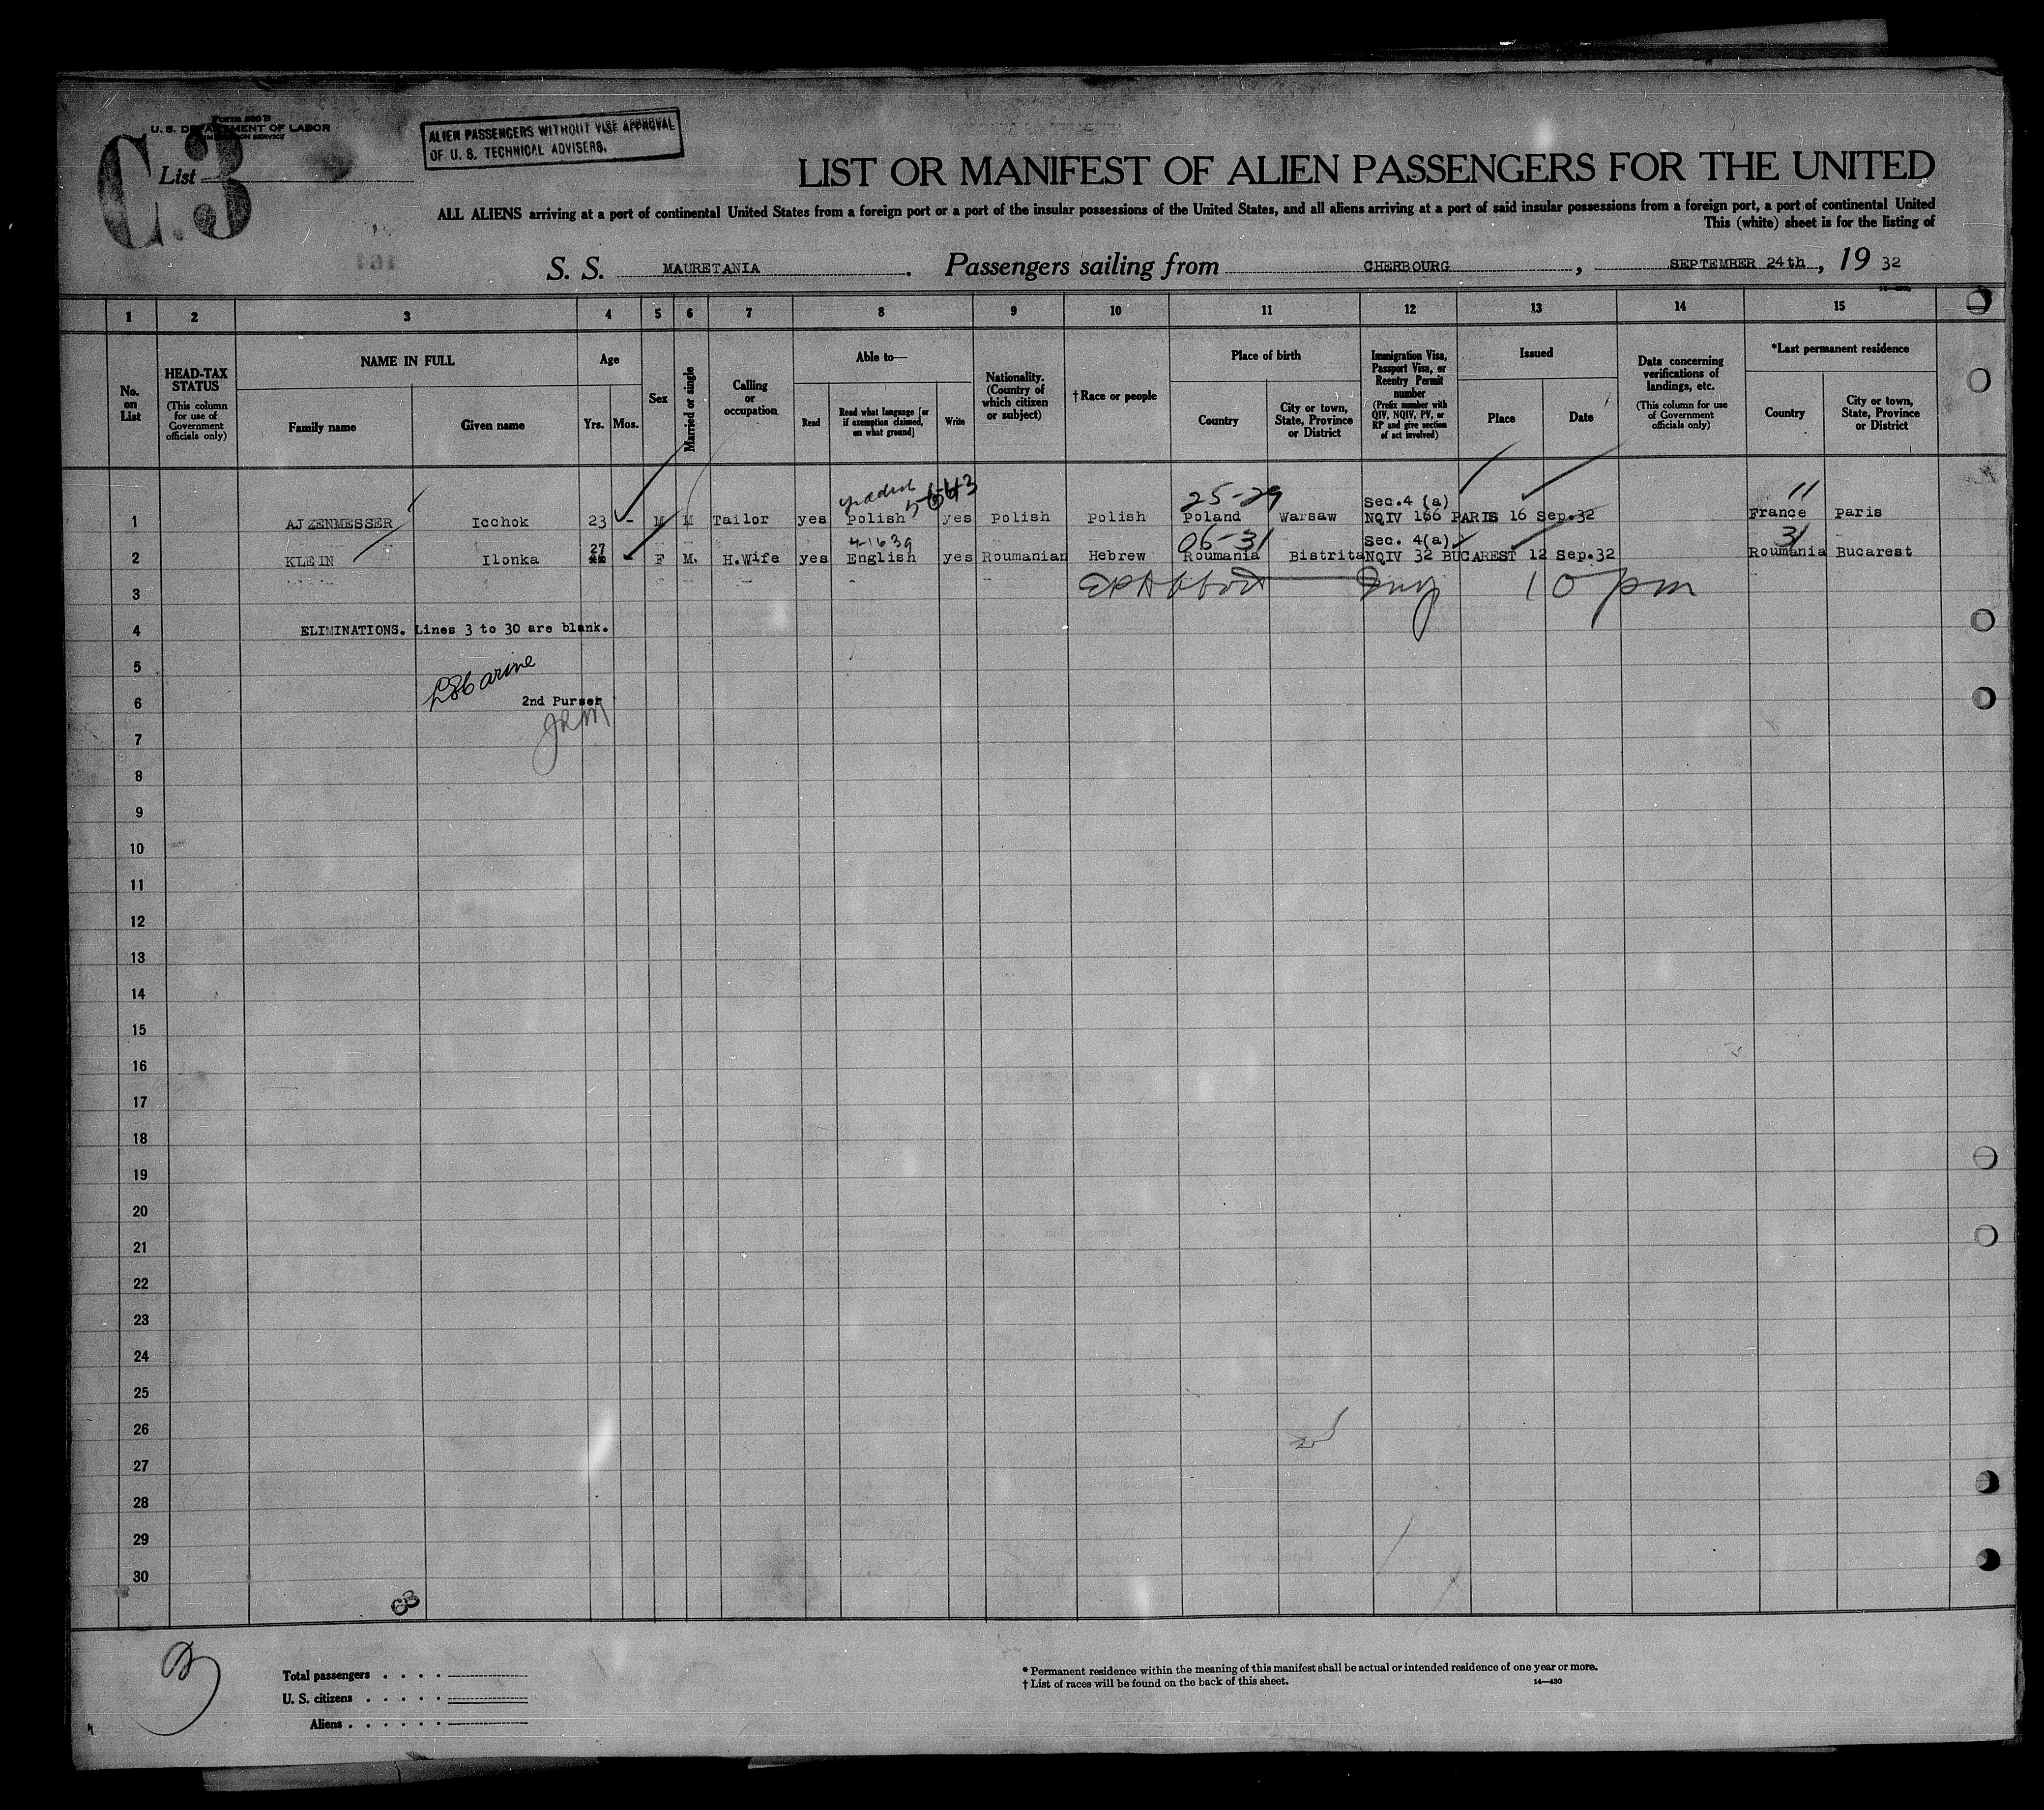 Form 500 B
U. S. DEPARTMENT OF LABOR
IMMIGRATION SERVICE
C.3
List
ALIEN PASSENGERS WITHOUT VISE APPROVAL
OF U. S. TECHNICAL ADVISERS.
LIST OR MANIFEST OF ALIEN PASSENGERS FOR THE UNITED
ALL ALIENS arriving at a port of continental United States from a foreign port or a port of the insular possessions of the United States, and all aliens arriving at a port of said insular possessions from a foreign port, a port of continental United
This (white) sheet is for the listing of
S. S. MAURETANIA. Passengers sailing from CHERBOURG, SEPTEMBER 24th, 19 32
1 2 3 4 5 6 7 8 9 10 11 12 13 14 15
No. on List
HEAD-TAX STATUS (This column for use of Government officials only)
NAME IN FULL
Family name
Given name
Age
Yrs. Mos.
Sex
Married or single
Calling or occupation
Able to—
Read
Read what language [or if exemption claimed, on what ground]
Write
Nationality. (Country of which citizen or subject)
† Race or people
Place of birth
Country
City or town, State, Province or District
Immigration Visa, Passport Visa, or Reentry Permit number (Prefix number with QIV, NQIV, PV, or RP and give section of act involved)
Issued
Place
Date
Data concerning verifications of landings, etc. (This column for use of Government officials only)
*Last permanent residence
Country
City or town, State, Province or District
5-643 25-29 Sec.4 (a) 11
1 AJZENMESSER Icchok 23 - M M Tailor yes Polish yes Polish Polish Poland Warsaw NQIV 166 PARIS 16 Sep.32 France Paris
27 4-1639 06-31 Sec. 4(a) 31
2 KLEIN Ilonka 42 F M. H.Wife yes English yes Roumanian Hebrew Roumania Bistrita NQIV 32 BUCAREST 12 Sep.32 Roumania Bucarest
3 Insp 10 pm
4 ELIMINATIONS. Lines 3 to 30 are blank.
5
6 2nd Purser
JRM
7
8
9
10
11
12
13
14
15
16
17
18
19
20
21
22
23
24
25
26
27
28
29
30
C3
Total passengers . . . .
U. S. citizens . . . . .
Aliens . . . . . .
* Permanent residence within the meaning of this manifest shall be actual or intended residence of one year or more.
† List of races will be found on the back of this sheet.
14—430